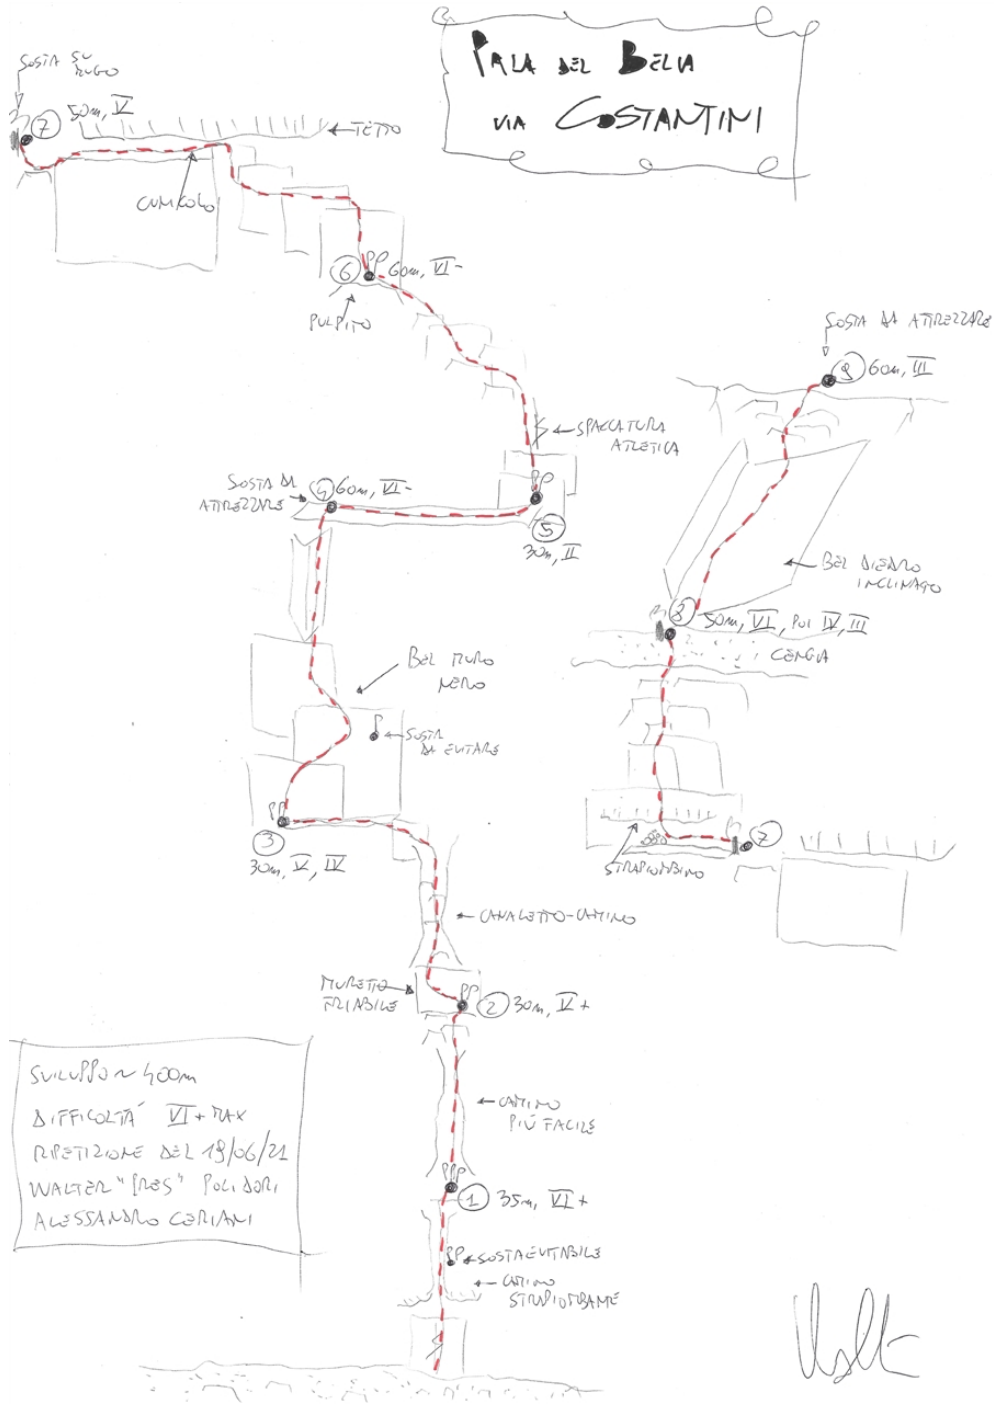 PALA DEL BELIA
VIA COSTANTINI
SOSTA SU
MUGO
7 50m, V
← TETTO
CUNICOLO
PP
6 60m, VI-
PULPITO
SOSTA DA ATTREZZARE
9 60m, III
← SPACCATURA
ATLETICA
SOSTA DA
ATTREZZARE
4 60m, VI-
PP
5
30m, II
BEL DIEDRO
INCLINATO
8 50m, VI, POI IV, III
CENGIA
BEL MURO
NERO
P
← SOSTA
DA EVITARE
PP
3
30m, V, IV
7
STRAPIOMBINO
← CANALETTO-CAMINO
MURETTO
FRIABILE
PP
2 30m, V+
← CAMINO
PIÚ FACILE
PPP
1 35m, VI+
PP ← SOSTA EVITABILE
← CAMINO
STRAPIOMBANTE
SVILUPPO ~ 400m
DIFFICOLTÁ VI+ MAX
RIPETIZIONE DEL 19/06/21
WALTER "IRES" POLIDORI
ALESSANDRO CERIANI